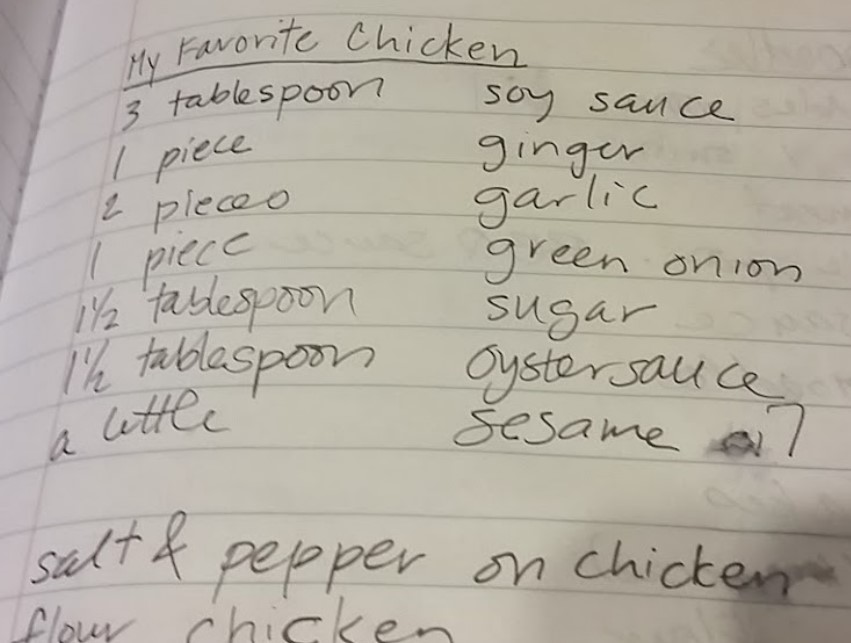 My Favorite Chicken
3 tablespoon soy sauce
1 piece ginger
2 pieces garlic
1 piece green onion
1½ tablespoon sugar
1½ tablespoon oyster sauce
a little sesame oil
salt & pepper on chicken
flour chicken